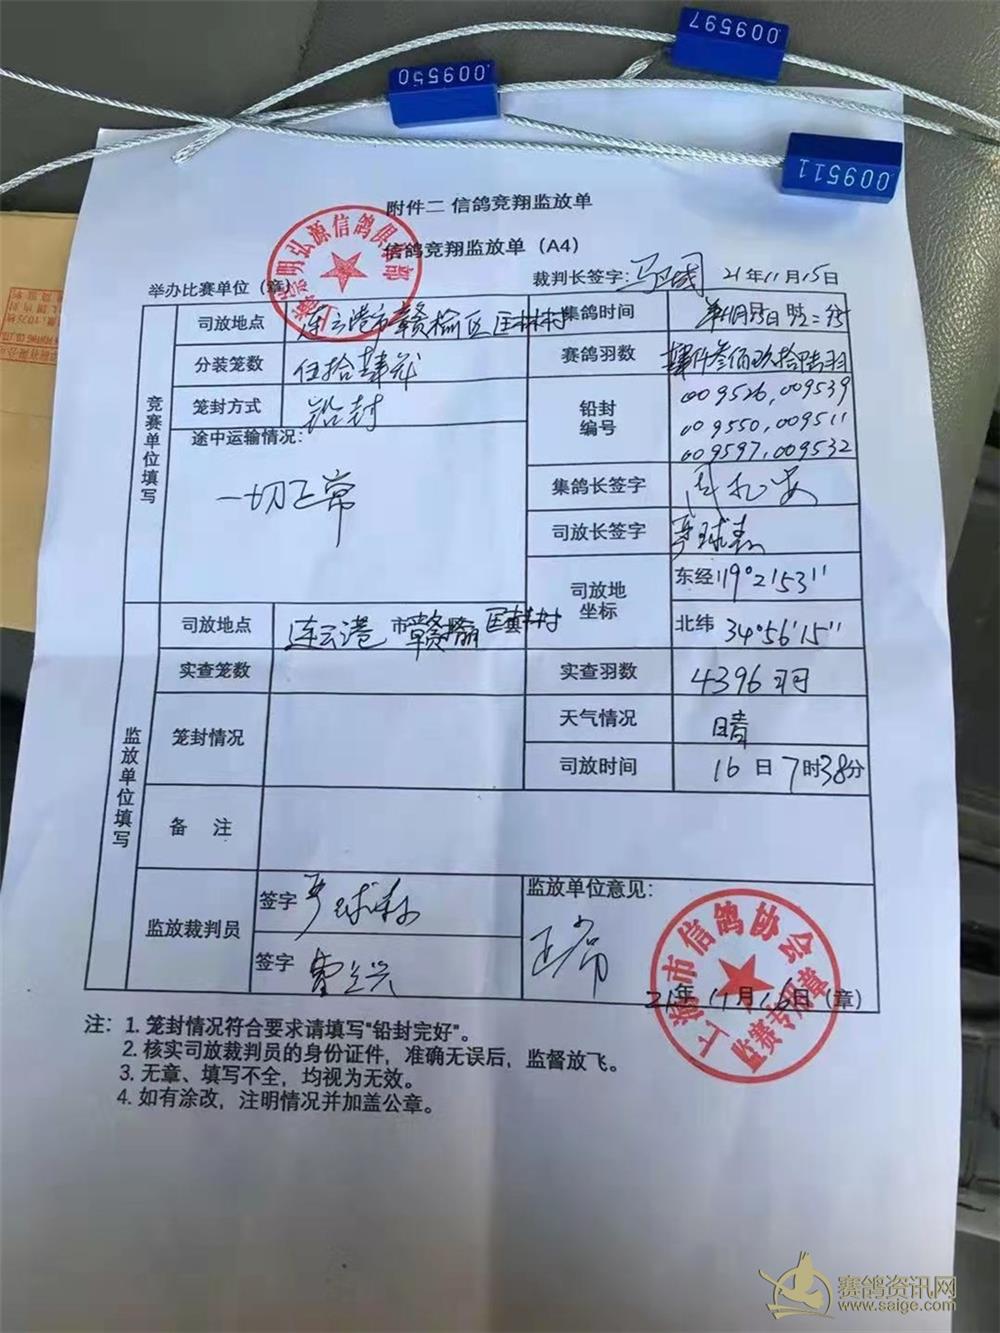 009597
009550
009511
附件二 信鸽竞翔监放单
信鸽竞翔监放单（A4）
举办比赛单位（章） 裁判长签字： 21年11月15日
竞赛单位填写
司放地点 连云港市赣榆区 集鸽时间
分装笼数 伍拾肆 赛鸽羽数 肆仟叁佰玖拾陆羽
笼封方式 铅封 铅封编号 009526,009539
009550,009511
009597,009532
途中运输情况：
一切正常
集鸽长签字
司放长签字
司放地坐标 东经119°2'53''
北纬 34°56'15''
监放单位填写
司放地点 连云港市赣榆
实查笼数 实查羽数 4396羽
笼封情况 天气情况 晴
司放时间 16日7时38分
备 注
监放裁判员 签字
签字
监放单位意见：
正常
21年11月16日（章）
上海市信鸽协会
监赛专用章
注：1. 笼封情况符合要求请填写"铅封完好"。
2. 核实司放裁判员的身份证件，准确无误后，监督放飞。
3. 无章、填写不全，均视为无效。
4. 如有涂改，注明情况并加盖公章。
赛鸽资讯网
www.saige.com